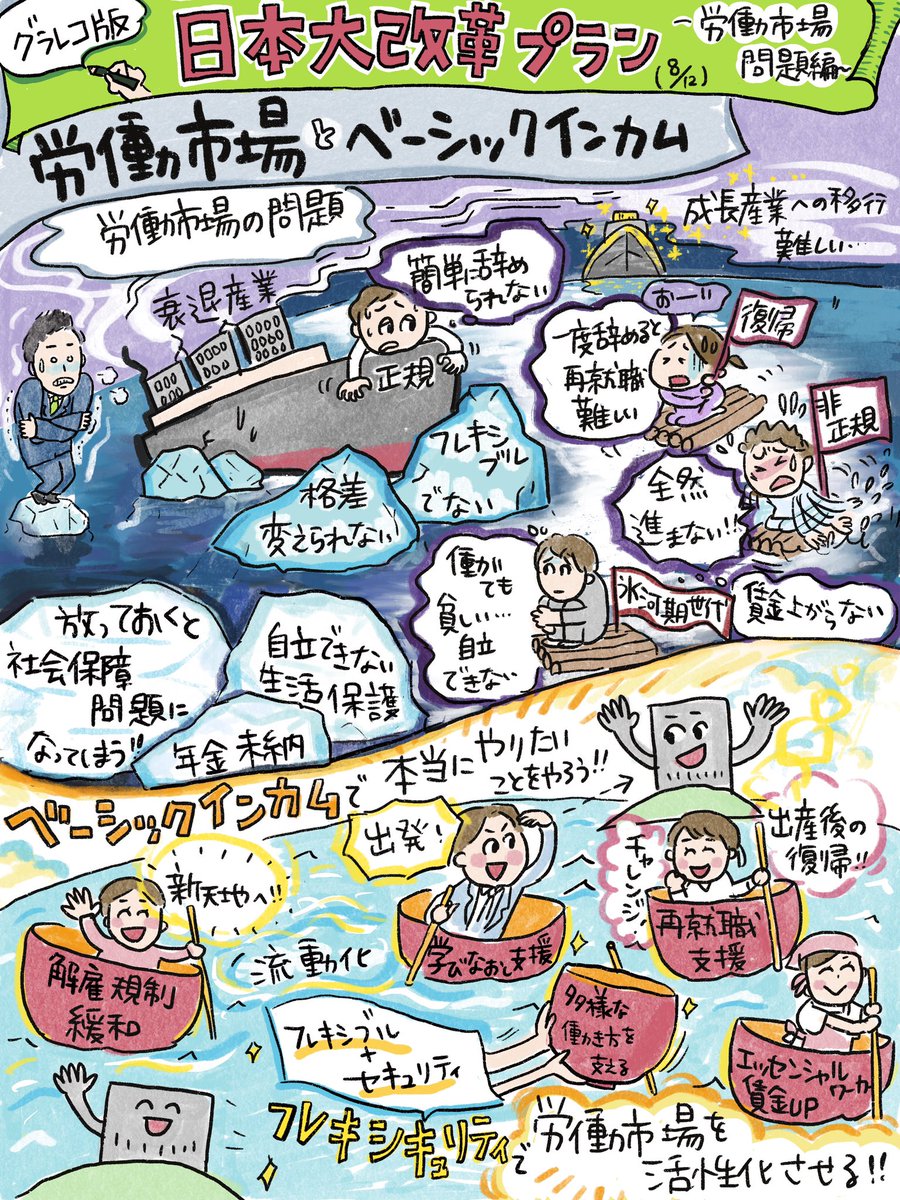 グラレコ版
日本大改革プラン
〜労働市場
問題編〜
(8/12)
労働市場とベーシックインカム
労働市場の問題
成長産業への移行
難しい…
衰退産業
簡単に辞め
られない
正規
おーい
復帰
一度辞めると
再就職
難しい
非
正規
フレキシ
ブル
でない
格差
変えられない
全然
進まない!!
働いても
貧しい…
自立
できない
氷河期世代
賃金上がらない
放っておくと
社会保障
問題に
なってしまう
自立できない
生活保護
年金未納
ベーシックインカムで
本当にやりたい
ことをやろう!!
出発!
出産後の
復帰!!
チャレンジ
新天地へ!!
解雇規制
緩和
流動化
学びなおし支援
再就職
支援
多様な
働き方を
支える
フレキシブル
+
セキュリティ
エッセンシャル
ワーカー
賃金UP
フレキシキュリティで
労働市場を
活性化させる!!